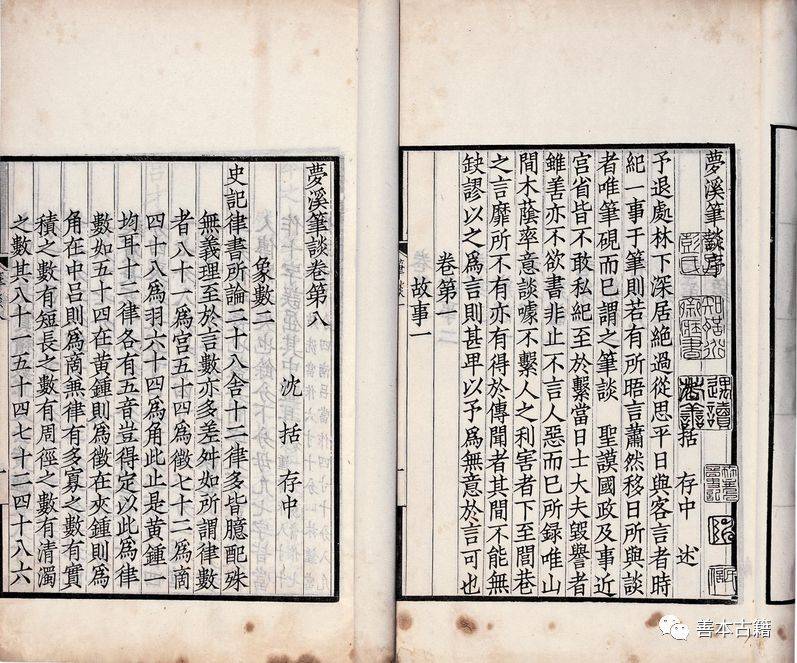 夢溪筆談序
括　存中　述
予退處林下深居絶過從思平日與客言者時
紀一事于筆則若有所晤言蕭然移日所與談
者唯筆硯而已謂之筆談　聖謨國政及事近
宮省皆不敢私紀至於繫當日士大夫毀譽者
雖善亦不欲書非止不言人惡而已所録唯山
間木蔭率意談噱不繫人之利害者下至閭巷
之言靡所不有亦有得於傳聞者其間不能無
缺謬以之爲言則甚卑以予爲無意於言可也
卷第一
故事一
夢溪筆談卷第八
沈　括　存中
象數二
史記律書所論二十八舍十二律多皆臆配殊
無義理至於言數亦多差舛如所謂律數
者八十一爲宮五十四爲徵七十二爲商
四十八爲羽六十四爲角此止是黄鍾一
均耳十二律各有五音豈得定以此爲律
數如五十四在黄鍾則爲徵在夾鍾則爲
角在中吕則爲商兼律有多寡之數有實
積之數有短長之數有周徑之數有清濁
之數其八十一五十四七十二四十八六
善本古籍